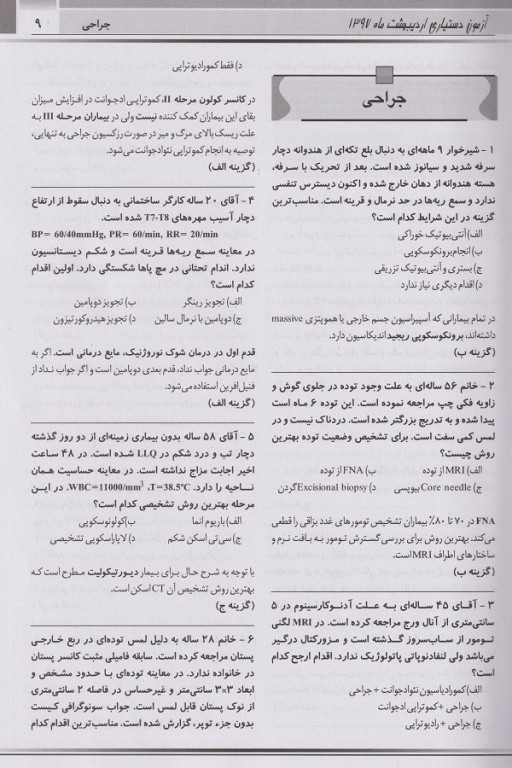 آزمون دستیاری اردیبهشت ماه ۱۳۹۷
جراحی
۹
جراحی
۱ – شیرخوار ۹ ماهه‌ای به دنبال بلع تکه‌ای از هندوانه دچار
سرفه شدید و سیانوز شده است. بعد از تحریک با سرفه،
هسته هندوانه از دهان خارج شده و اکنون دیسترس تنفسی
ندارد و سمع ریه‌ها در حد نرمال و قرینه است. مناسب‌ترین
گزینه در این شرایط کدام است؟
الف) آنتی‌بیوتیک خوراکی
ب) انجام برونکوسکوپی
ج) بستری و آنتی‌بیوتیک تزریقی
د) اقدام دیگری نیاز ندارد
در تمام بیمارانی که آسپیراسیون جسم خارجی یا هموپتزی massive
داشته‌اند، برونکوسکوپی ریجید اندیکاسیون دارد.
(گزینه ب)
۲ – خانم ۵۶ ساله‌ای به علت وجود توده در جلوی گوش و
زاویه فکی چپ مراجعه نموده است. این توده ۶ ماه است
پیدا شده و به تدریج بزرگتر شده است. دردناک نیست و در
لمس کمی سفت است. برای تشخیص وضعیت توده بهترین
روش چیست؟
الف) MRI از توده
ب) FNA از توده
ج) Core needle بیوپسی
د) Excisional biopsy گردن
FNA در ۷۰ تا ۸۰٪ بیماران تشخیص تومورهای غدد بزاقی را قطعی
می‌کند. بهترین روش برای بررسی گسترش تومور به بافت نرم و
ساختارهای اطراف MRI است.
(گزینه ب)
۳ – آقـای ۴۵ سـاله‌ای بـه عـلت آدنـوکارسینوم در ۵
سانتی‌متری از آنال ورج مراجعه کرده است. در MRI لگنی
تـومور از ساب‌سروز گذشته است و مزورکتال درگیر
می‌باشد ولی لنفادنوپاتی پاتولوژیک ندارد. اقدام ارجح کدام
است؟
الف) کمورادیاسیون نئوادجوانت + جراحی
ب) جراحی + کموتراپی ادجوانت
ج) جراحی + رادیوتراپی
د) فقط کمورادیوتراپی
در کانسر کولون مرحله II، کموتراپی ادجوانت در افزایش میزان
بقای این بیماران کمک کننده نیست ولی در بیماران مرحله III به
علت ریسک بالای مرگ و میر در صورت رزکسیون جراحی به تنهایی،
توصیه به انجام کموتراپی نئوادجوانت می‌شود.
(گزینه الف)
۴ – آقای ۲۰ ساله کارگر ساختمانی به دنبال سقوط از ارتفاع
دچار آسیب مهره‌های T7-T8 شده است.
BP= 60/40mmHg, PR= 60/min, RR= 20/min
در معاینه سـمع ریـه‌ها قـرینه است و شکـم دیـستانسیون
ندارد. اندام تحتانی در مچ پاها شکستگی دارد. اولین اقدام
کدام است؟
الف) تجویز رینگر
ب) تجویز دوپامین
ج) دوپامین با نرمال سالین
د) تجویز هیدروکورتیزون
قدم اول در درمان شوک نوروژنیک، مایع درمانی است. اگر به
مایع درمانی جواب نداد، قدم بعدی دوپامین است و اگر جواب نداد از
فنیل‌افرین استفاده می‌شود.
(گزینه الف)
۵ – آقای ۵۸ ساله بدون بیماری زمینه‌ای از دو روز گذشته
دچار تب و درد شکم در LLQ شده است. در ۴۸ ساعت
اخیر اجابت مزاج نداشته است. در معاینه حساسیت همان
ناحیه را دارد. T=38.5°C، WBC=11000/mm³. در ایـن
مرحله بهترین روش تشخیصی کدام است؟
الف) باریوم انما
ب) کولونوسکوپی
ج) سی تی اسکن شکم
د) لاپاراسکوپی تشخیصی
با توجه به شرح حال برای بیمار دیورتیکولیت مطرح است که
بهترین روش تشخیص آن CT اسکن است.
(گزینه ج)
۶ – خانم ۲۸ ساله به دلیل لمس توده‌ای در ربع خارجی
پستان مراجعه کرده است. سابقه فامیلی مثبت کانسر پستان
در خانواده ندارد. در معاینه توده‌ای با حدود مشخص و
ابعاد ۳×۳ سانتی‌متر و غیرحساس در فاصله ۲ سانتی‌متری
از نوک پستان قابل لمس است. جواب سونوگرافی کیست
بدون جزء توپر، گزارش شده است. مناسب‌ترین اقدام کدام